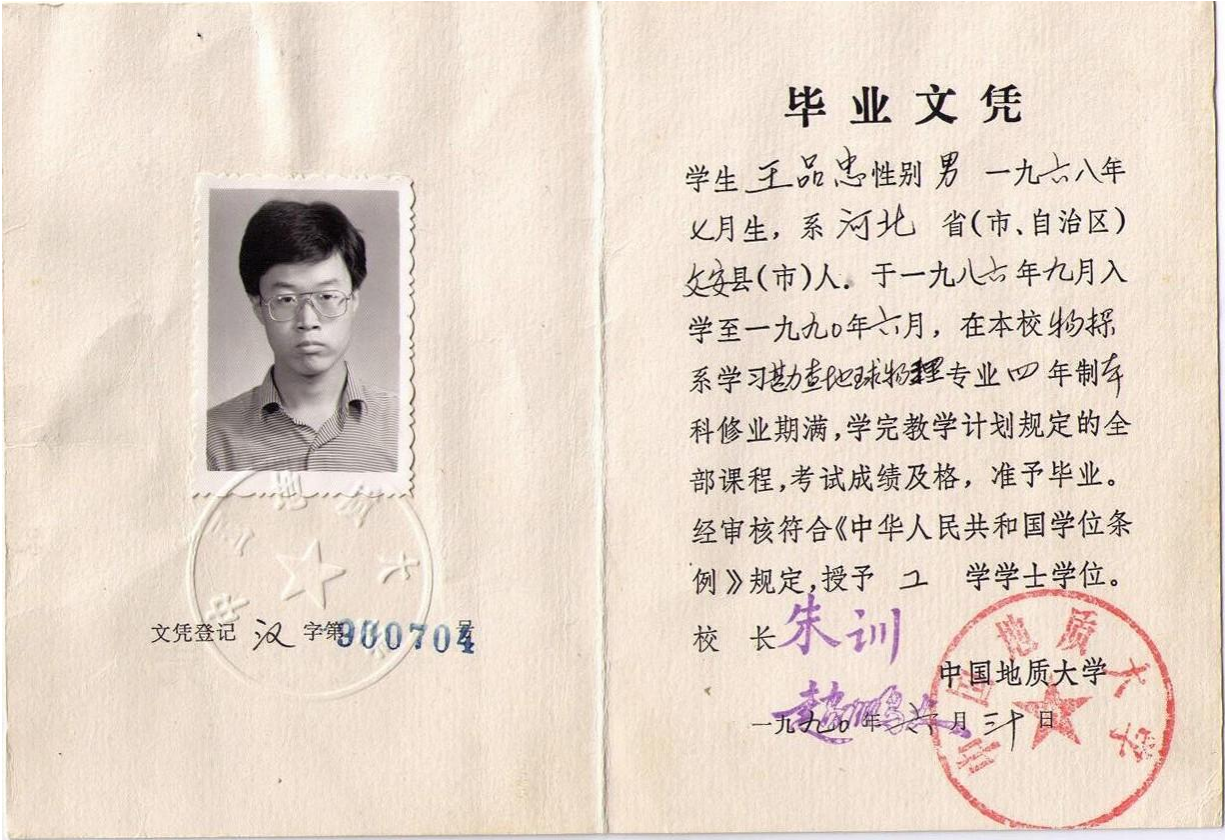 文凭登记 汉 字第900704号
毕业文凭
学生王品忠性别男 一九六八年
七月生，系河北 省（市、自治区）
文安县（市）人。于一九八六年九月入
学至一九九〇年六月，在本校物探
系学习勘查地球物理专业四年制本
科修业期满，学完教学计划规定的全
部课程，考试成绩及格，准予毕业。
经审核符合《中华人民共和国学位条
例》规定，授予 工 学学士学位。
校 长 朱训
赵鹏大
中国地质大学
一九九〇年六月三十日
中国地质大学